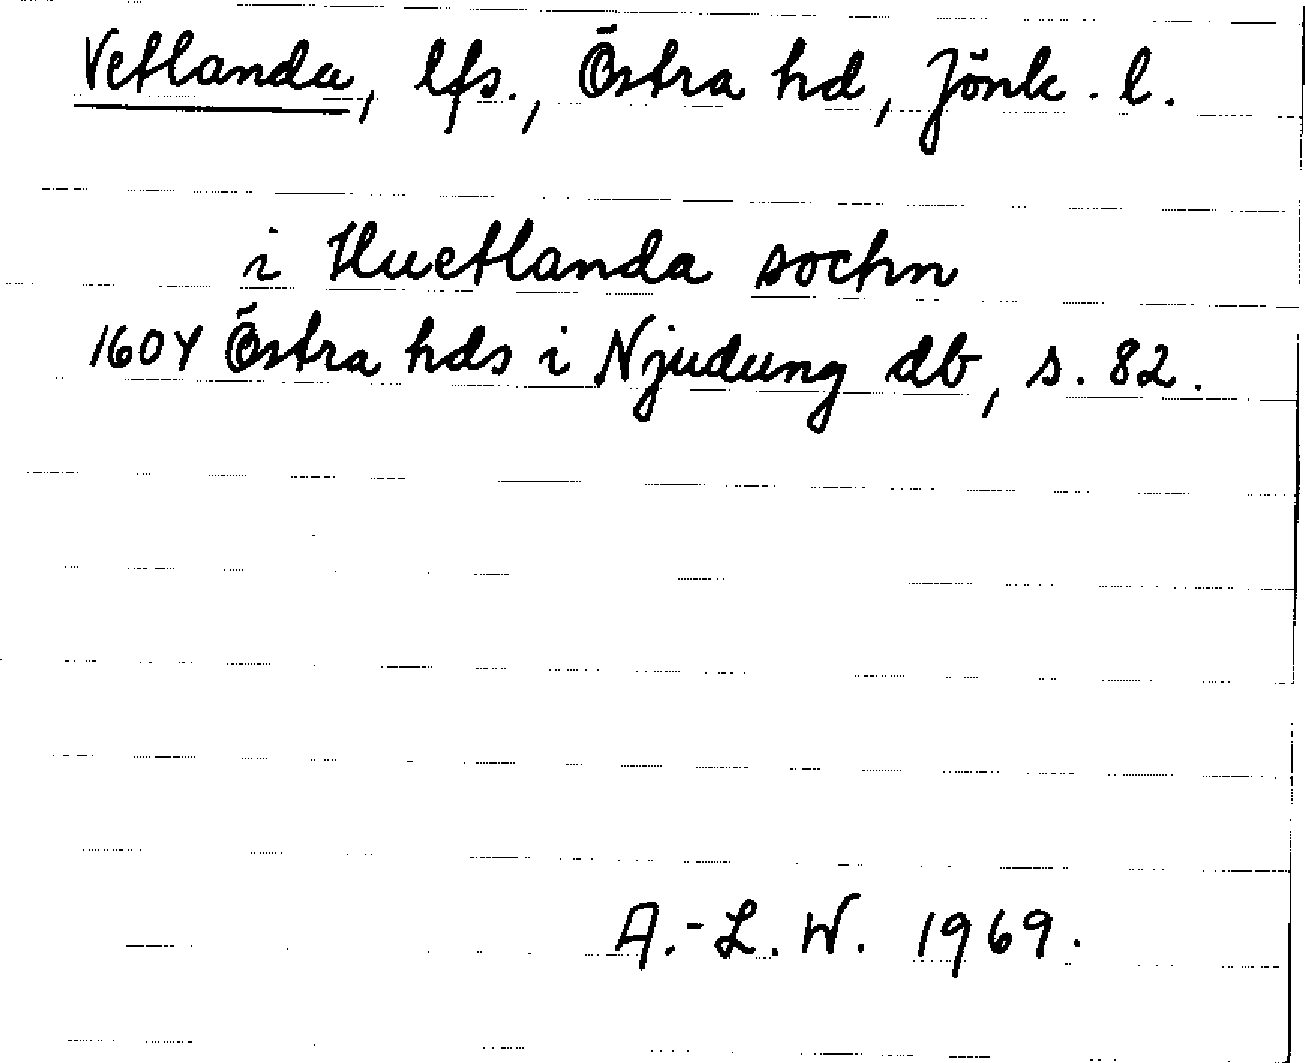 Vetlanda, lfs., Östra hd, Jönk. l.
i Huetlanda sochn
1604 Östra hds i Njudung db, s. 82.
A.-L. W. 1969.